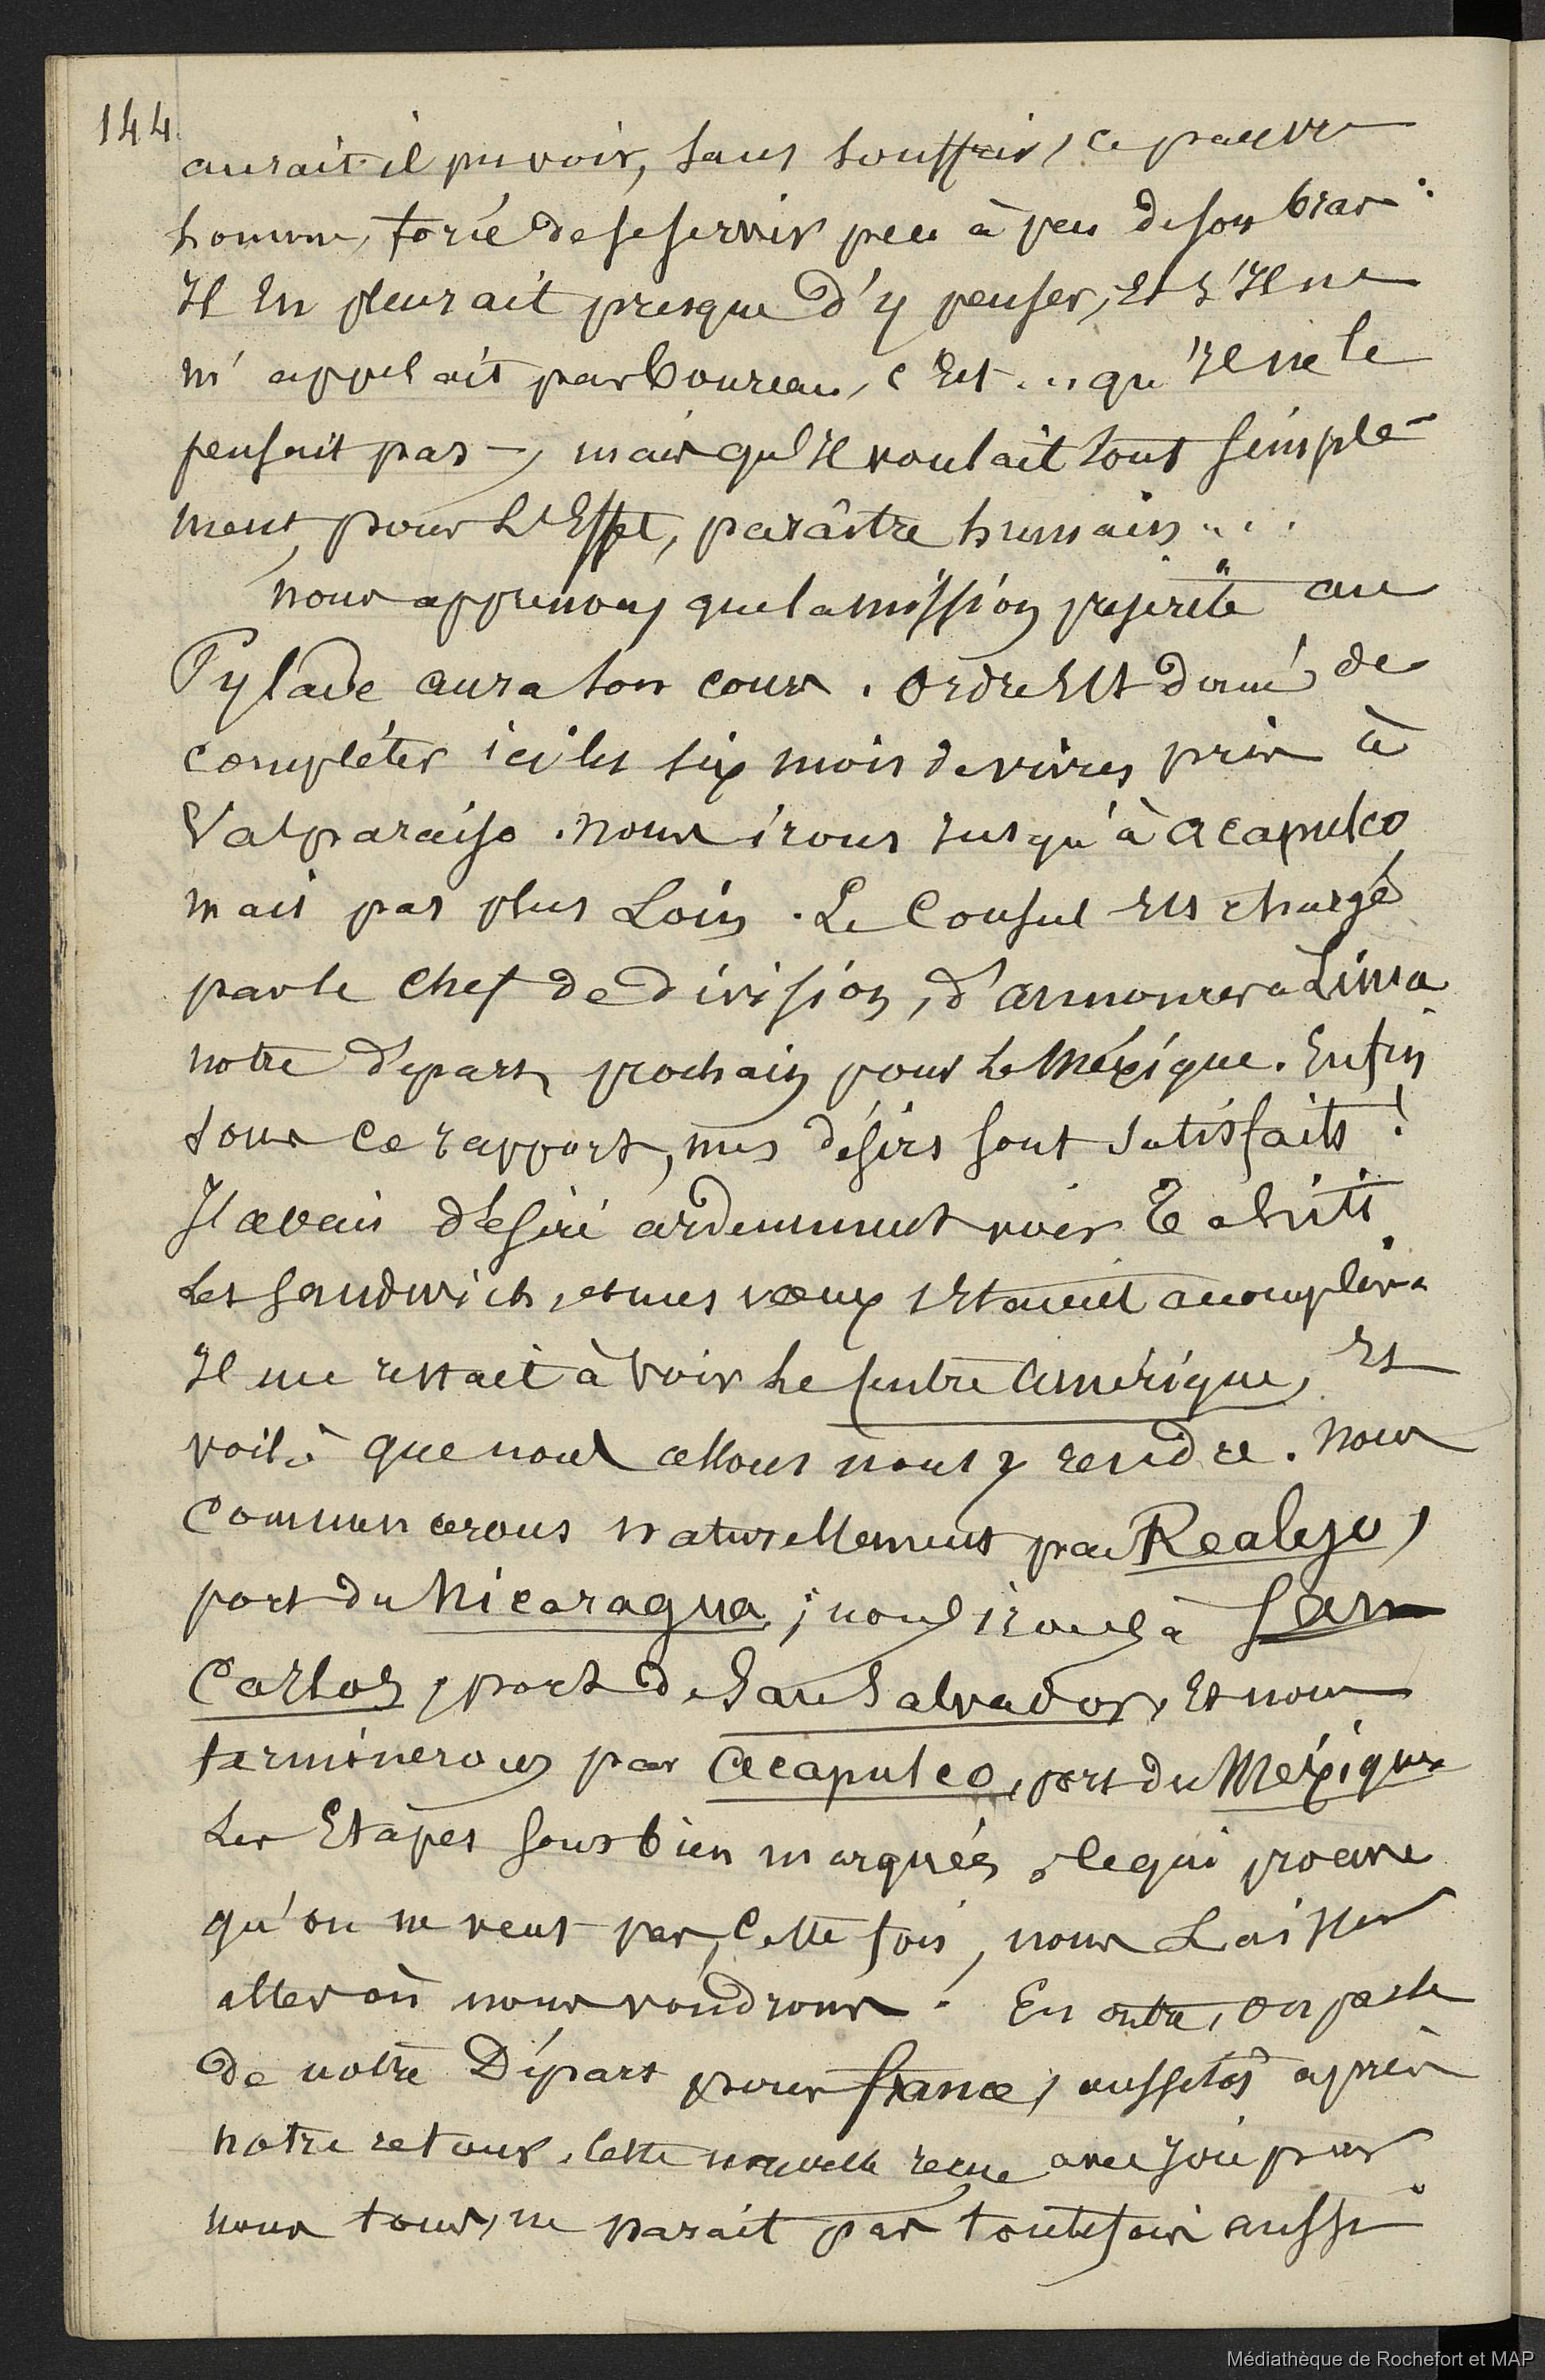 144
aurait-il pu voir, sans souffrir, ce pauvre
homme, forcé de se servir peu à peu de son bras.
Il en pleurait presque d'y penser, et s'il ne
m'appelait pas boureau, c'est... qu'il ne le
pensait pas, mais qu'il voulait tout simple-
ment, pour l'Effet, paraître humain....
nous apprenons que la mission préscrite au
Pylade aura son cours. ordre est donné de
compléter ici les six mois de vivres pris à
Valparaiso. nous irons jusqu'à acapulco
mais pas plus Loin. Le Consul est chargé
par le chef de division, d'annoncer à Lima
notre départ prochain pour le Méxique. Enfin
sous ce rapport, mes désirs sont satisfaits!
J'avais désiré ardemment voir Tahiti
Les Sandwich, et mes vœux s'étaient accomplis.
Il me restait à voir le Centre Amérique, et
voilà que nous allons nous y rendre. nous
commencerons naturellement par Realejo,
port du Nicaragua; nous irons à San
Carlos, port de San Salvador, et nous
terminerons par Acapulco, port du Méxique
Les Etapes sont bien marquées, ce qui prouve
qu'on ne veut pas, cette fois, nous Laisser
aller où nous voudrons. En outre, on parle
de notre Départ pour france, aussitôt après
notre retour. Cette nouvelle reçue avec joie par
nous tous, ne parait pas toutefois aussi
Médiathèque de Rochefort et MAP